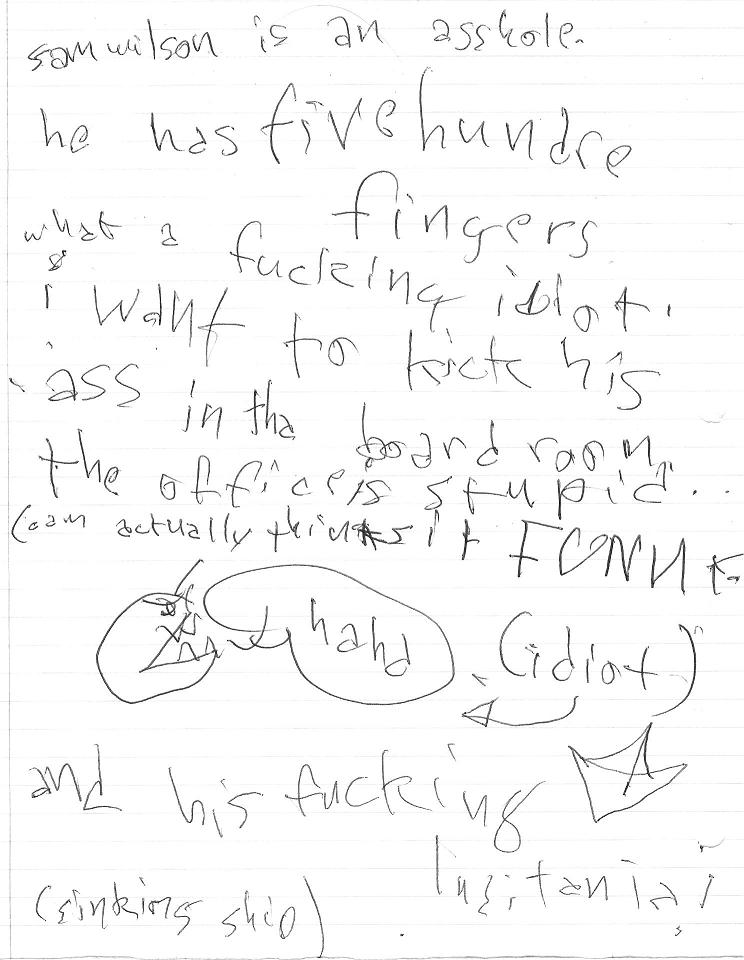 sam wilson is an asshole.
he has five hundre
fingers
what a fucking idiot.
i want to kick his
ass in the board room.
the office is stupid...
(sam actually thinks it
haha
(idiot)
and his fucking
luzitania!
(sinking ship)